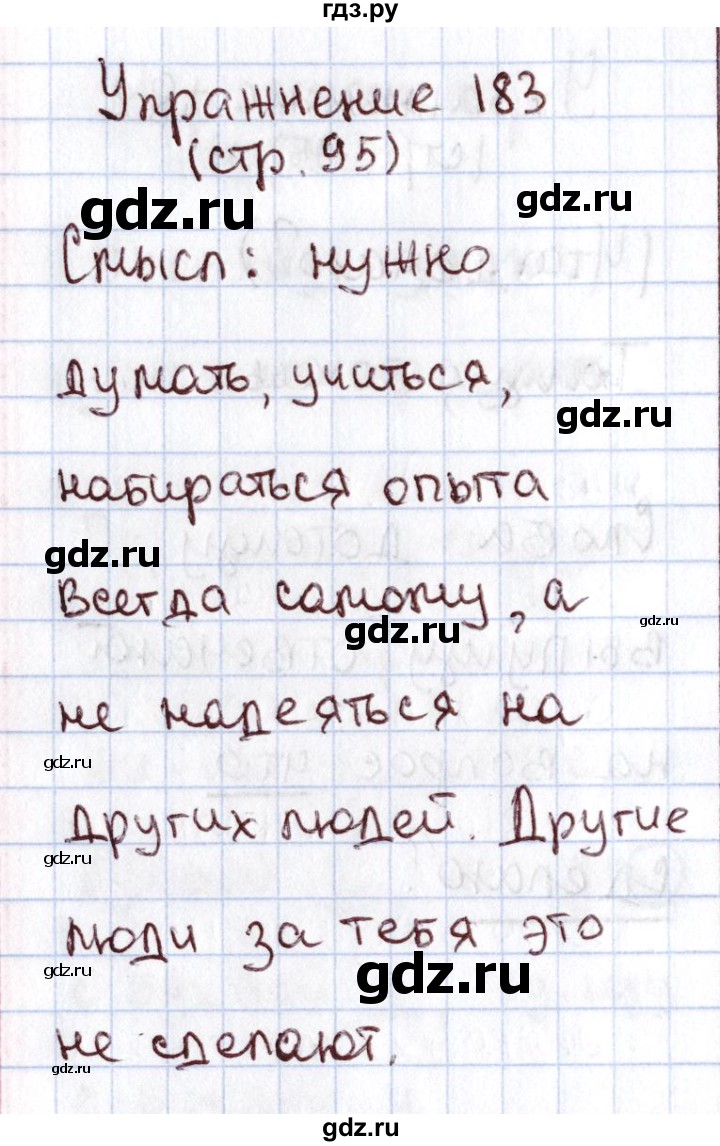 гдз.ру
Упражнение 183
(стр. 95)
gdz.ru
gdz.ru
Смысл: нужно
думать, учиться,
gdz.ru
набираться опыта
gdz.ru
всегда самому, а
gdz.ru
gdz.ru
не надеяться на
gdz.ru
других людей. Другие
gdz.ru
люди за тебя это
gdz.ru
gdz.ru
не сделают.
gdz.ru
gdz.ru